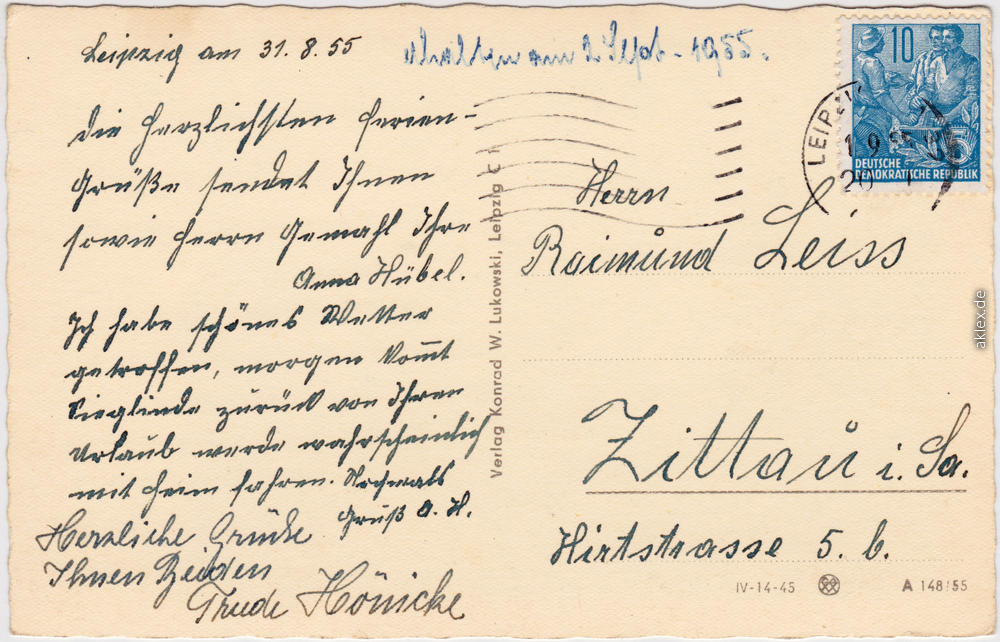 Leipzig am 31.8.55
erhalten am 2 Sept. - 1955.
Die herzlichsten Ferien-
Grüße sendet Ihnen
sowie Herrn Gemahl Ihre
Anna Hübel.
Ich habe schönes Wetter
getroffen, morgen kommt
Sieglinde zurück von Ihren
Urlaub werde wahrscheinlich
mit heim fahren. Nochmals
Gruß A. H.
Herzliche Grüße
Ihnen Beiden
Trude Hönicke
Verlag Konrad W. Lukowski, Leipzig C 1
10
DEUTSCHE
DEMOKRATISCHE REPUBLIK
5
LEIPZIG
1 9 55
20
Herrn
Raimund Leiss
Zittau i. Sa.
Hirtstrasse 5. b.
IV-14-45 A 148/55
aklex.de